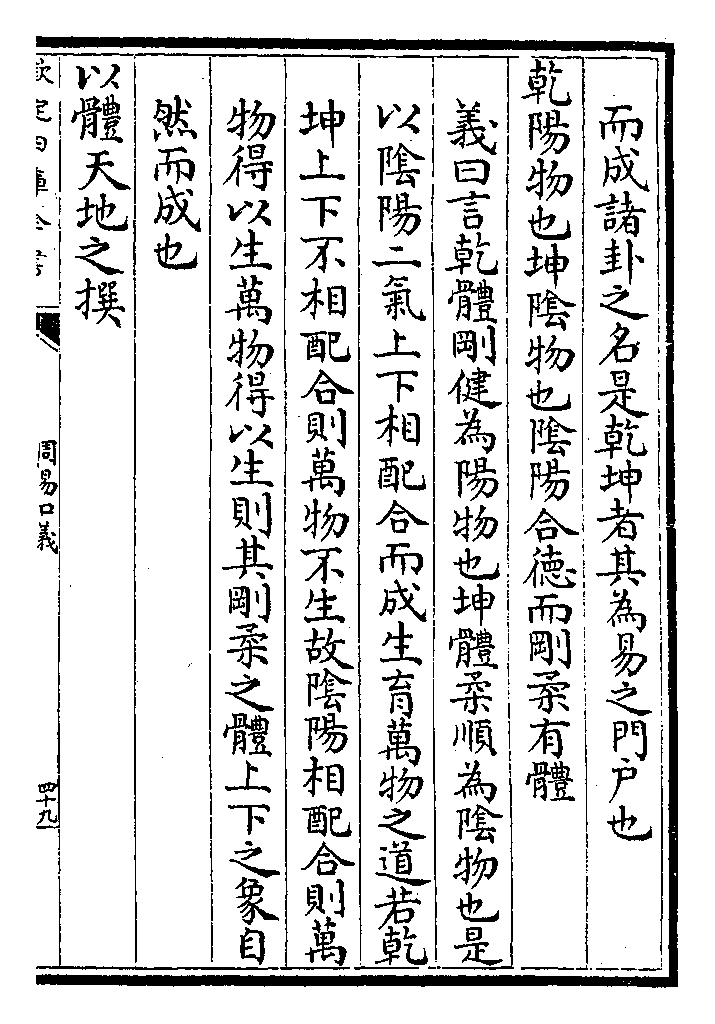 而成諸卦之名是乾坤者其為易之門户也
乾陽物也坤陰物也陰陽合德而剛柔有體
義曰言乾體剛健為陽物也坤體柔順為陰物也是
以陰陽二氣上下相配合而成生育萬物之道若乾
坤上下不相配合則萬物不生故陰陽相配合則萬
物得以生萬物得以生則其剛柔之體上下之象自
然而成也
以體天地之撰
欽定四庫全書
周易口義
四十九